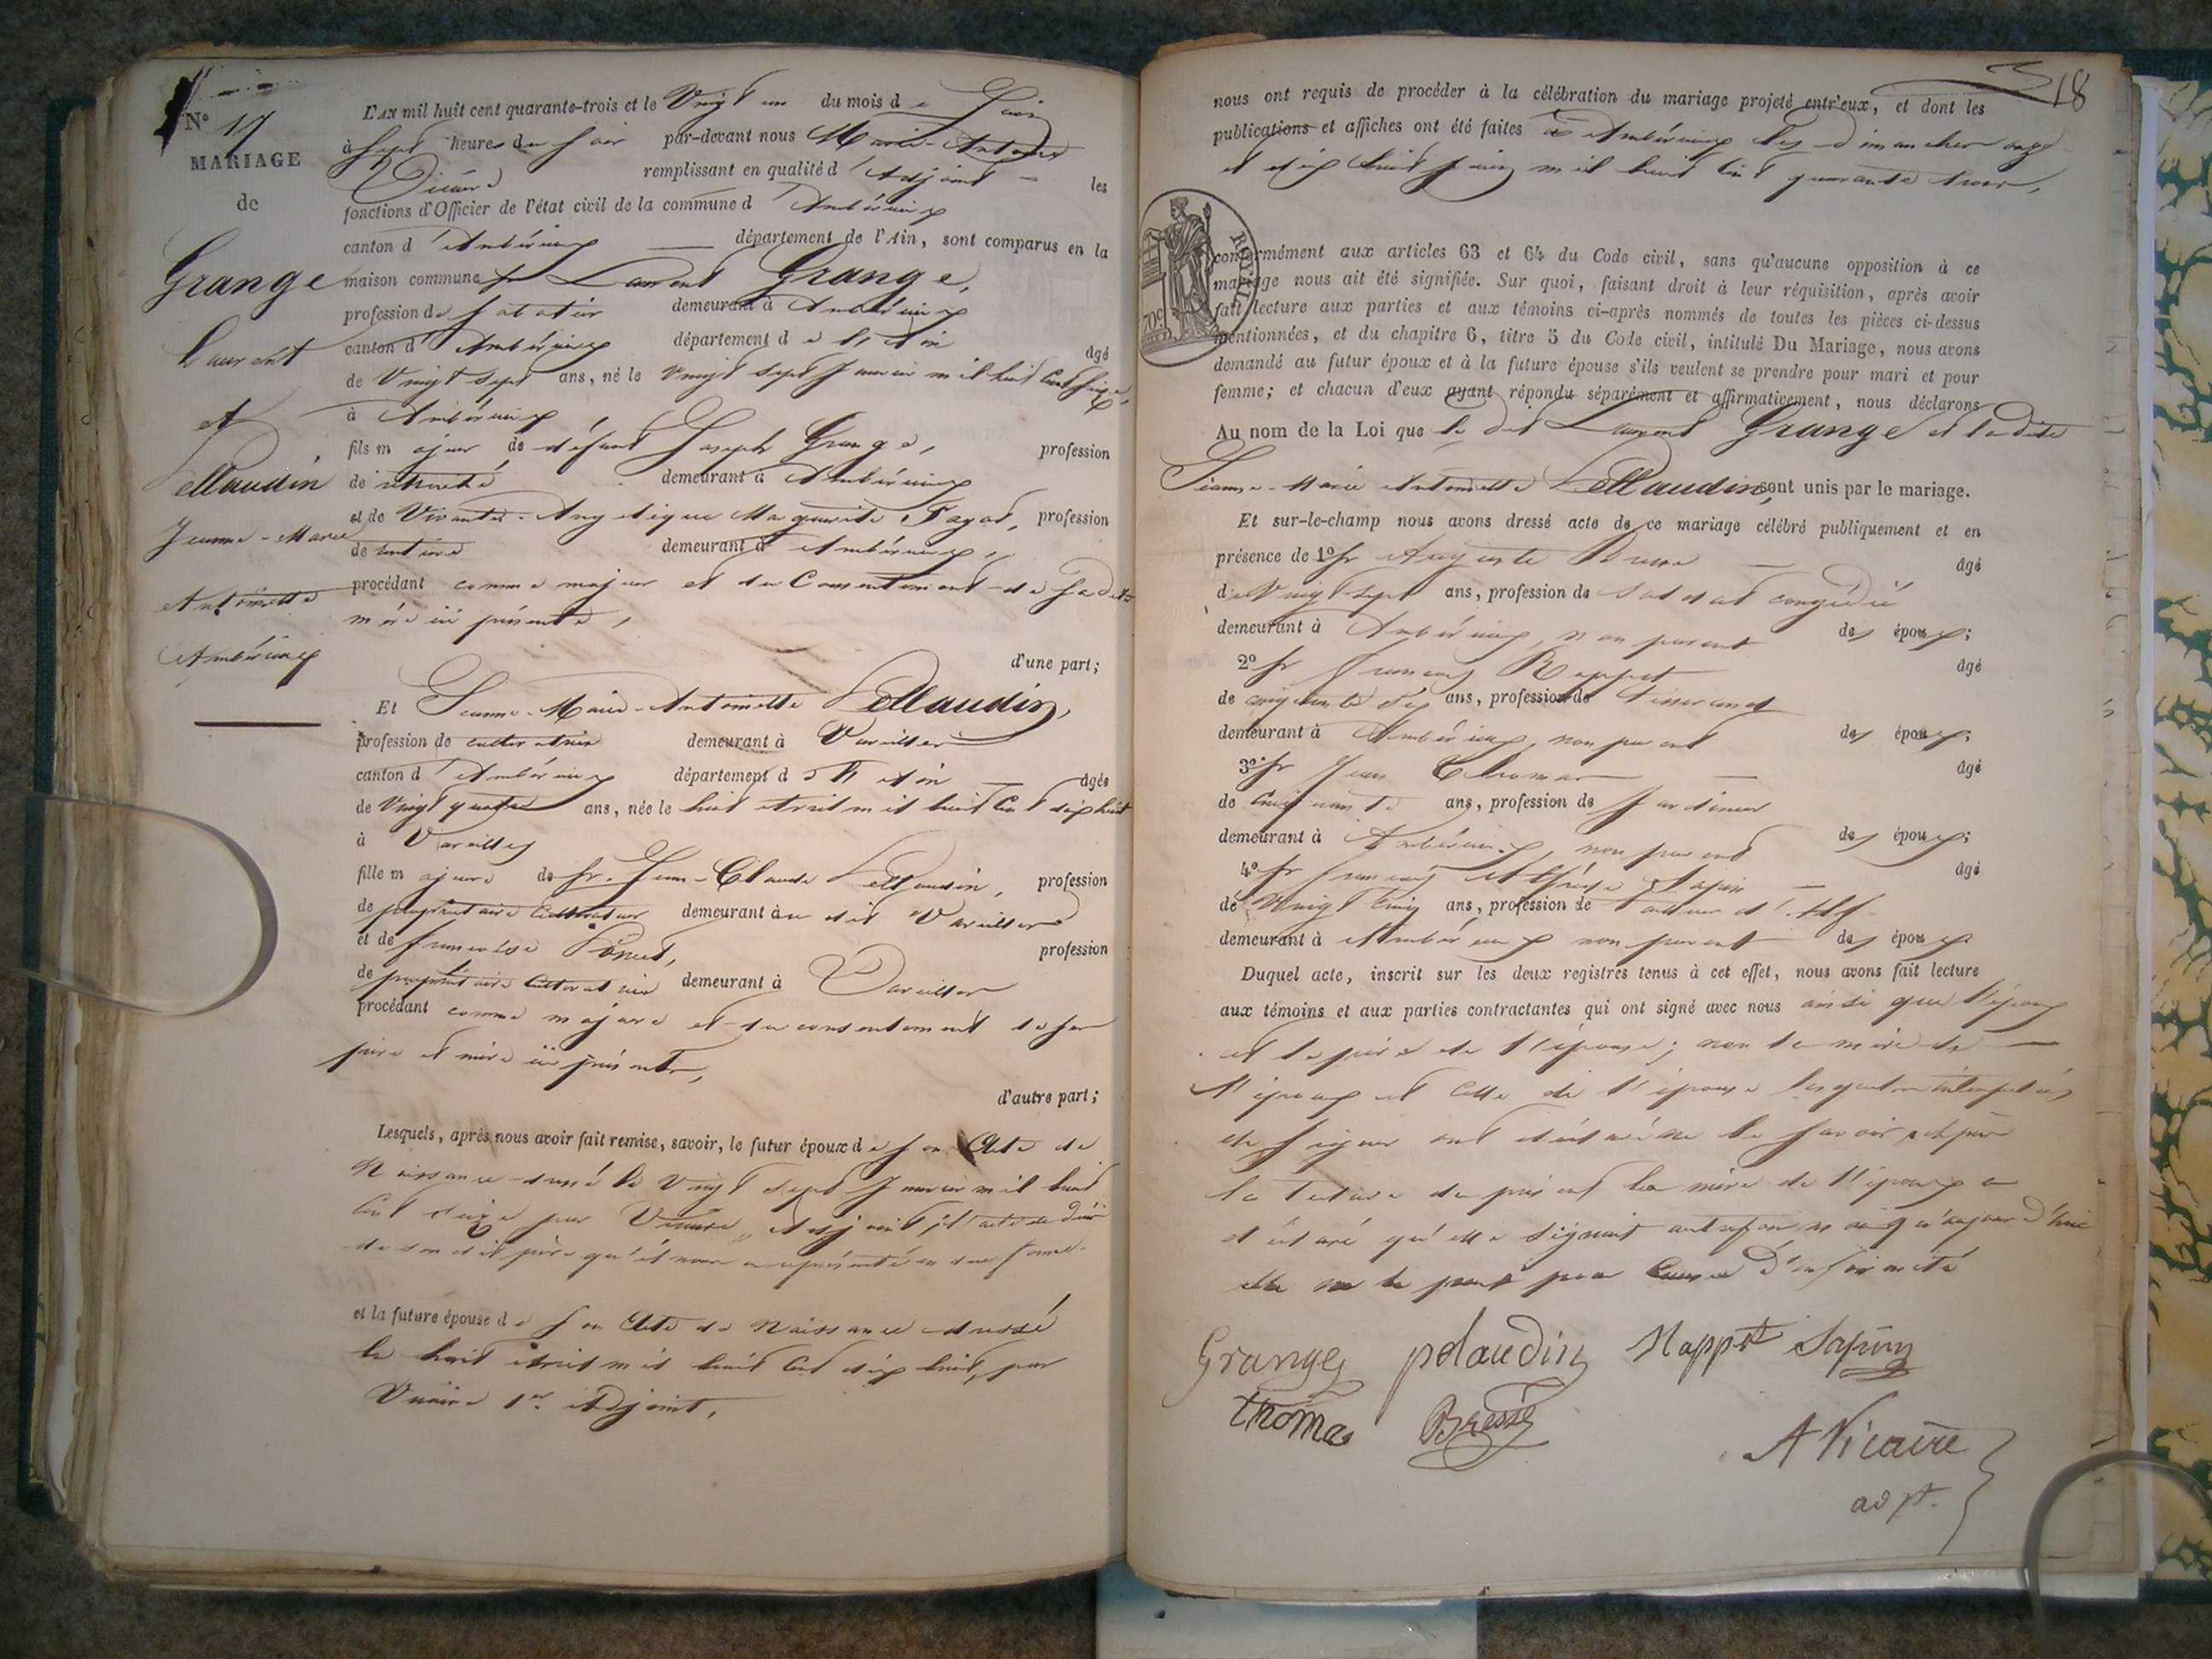 N° 17
MARIAGE
de
Grange
Laurent
et
Pellaudin
Jeanne-Marie
Antoinette
Ambérieux
L'AN mil huit cent quarante-trois et le Vingt un du mois de Juin
à Sept heures du Soir par-devant nous Marie-Antoine
Vicaire remplissant en qualité d'Adjoint les
fonctions d'Officier de l'état civil de la commune d'Ambérieux
canton d'Ambérieux département de l'Ain, sont comparus en la
maison commune Sr Laurent Grange,
profession de demeurant à Ambérieux
canton d'Ambérieux département de l'Ain âgé
de Vingt Sept ans, né le Vingt Sept Janvier mil huit Cent Seize,
à Ambérieux
fils majeur de défunt Joseph Grange, profession
de retraité demeurant à Ambérieux
et de Vivante Angélique Marguerite profession
de rentière demeurant à Ambérieux
procédant comme majeur et du Consentement de Sadite
mère ici présente,
d'une part;
Et Jeanne-Marie-Antoinette Pellaudin,
profession de cultivatrice demeurant à Vareilles
canton d'Ambérieux département de l'Ain âgée
de Vingt quatre ans, née le huit Avril mil huit Cent dix huit
à Vareilles
fille majeure de Sr. Jean-Claude Pellaudin, profession
de propriétaire Cultivateur demeurant au dit Vareilles
et de Françoise Poncet, profession
de propriétaire Cultivatrice demeurant à Vareilles
procédant comme majeure et du consentement de Ses
père et mère ici présents,
d'autre part;
Lesquels, après nous avoir fait remise, savoir, le futur époux de Son Acte de
Naissance dressé le Vingt Sept Janvier mil huit
Cent Seize par Vicaire, Adjoint, et l'acte de décès
de son dit père qu'il nous a représenté en due forme.
et la future épouse de Son Acte de Naissance dressé
le huit Avril mil huit Cent dix huit, par
Vicaire 1er Adjoint,
18
nous ont requis de procéder à la célébration du mariage projeté entr'eux, et dont les
publications et affiches ont été faites à Ambérieux les dimanches onze
et dix huit Juin mil huit Cent quarante trois,
ROYAL
70c
conformément aux articles 63 et 64 du Code civil, sans qu'aucune opposition à ce
mariage nous ait été signifiée. Sur quoi, faisant droit à leur réquisition, après avoir
fait lecture aux parties et aux témoins ci-après nommés de toutes les pièces ci-dessus
mentionnées, et du chapitre 6, titre 5 du Code civil, intitulé Du Mariage, nous avons
demandé au futur époux et à la future épouse s'ils veulent se prendre pour mari et pour
femme; et chacun d'eux ayant répondu séparément et affirmativement, nous déclarons
Au nom de la Loi que le dit Laurent Grange et la dite
Jeanne-Marie Antoinette Pellaudin, sont unis par le mariage.
Et sur-le-champ nous avons dressé acte de ce mariage célébré publiquement et en
présence de 1° Sr Auguste âgé
de Vingt Sept ans, profession de Soldat congédié
demeurant à Ambérieux, non parent des époux;
2° Sr François Rappet âgé
de cinquante Six ans, profession de Tisserand
demeurant à Ambérieux, non parent des époux;
3° Sr Jean Thomas âgé
de Cinquante ans, profession de Jardinier
demeurant à Ambérieux, non parent des époux;
4° Sr François Sapin âgé
de Vingt Cinq ans, profession de Tailleur d'
demeurant à Ambérieux non parent des époux
Duquel acte, inscrit sur les deux registres tenus à cet effet, nous avons fait lecture
aux témoins et aux parties contractantes qui ont signé avec nous ainsi que l'époux
et le père de l'épouse; non la mère de
l'époux et Celle de l'épouse lesquelles interpellées
de Signer ont déclaré ne le Savoir, après
la lecture du présent la mère de l'époux a
déclaré qu'elle Signait autrefois mais qu'aujourd'hui
elle ne le peut pour Cause d'infirmité
Grange pelaudin Rappet Sapin
thomas Bresse
A Vicaire
adjt.